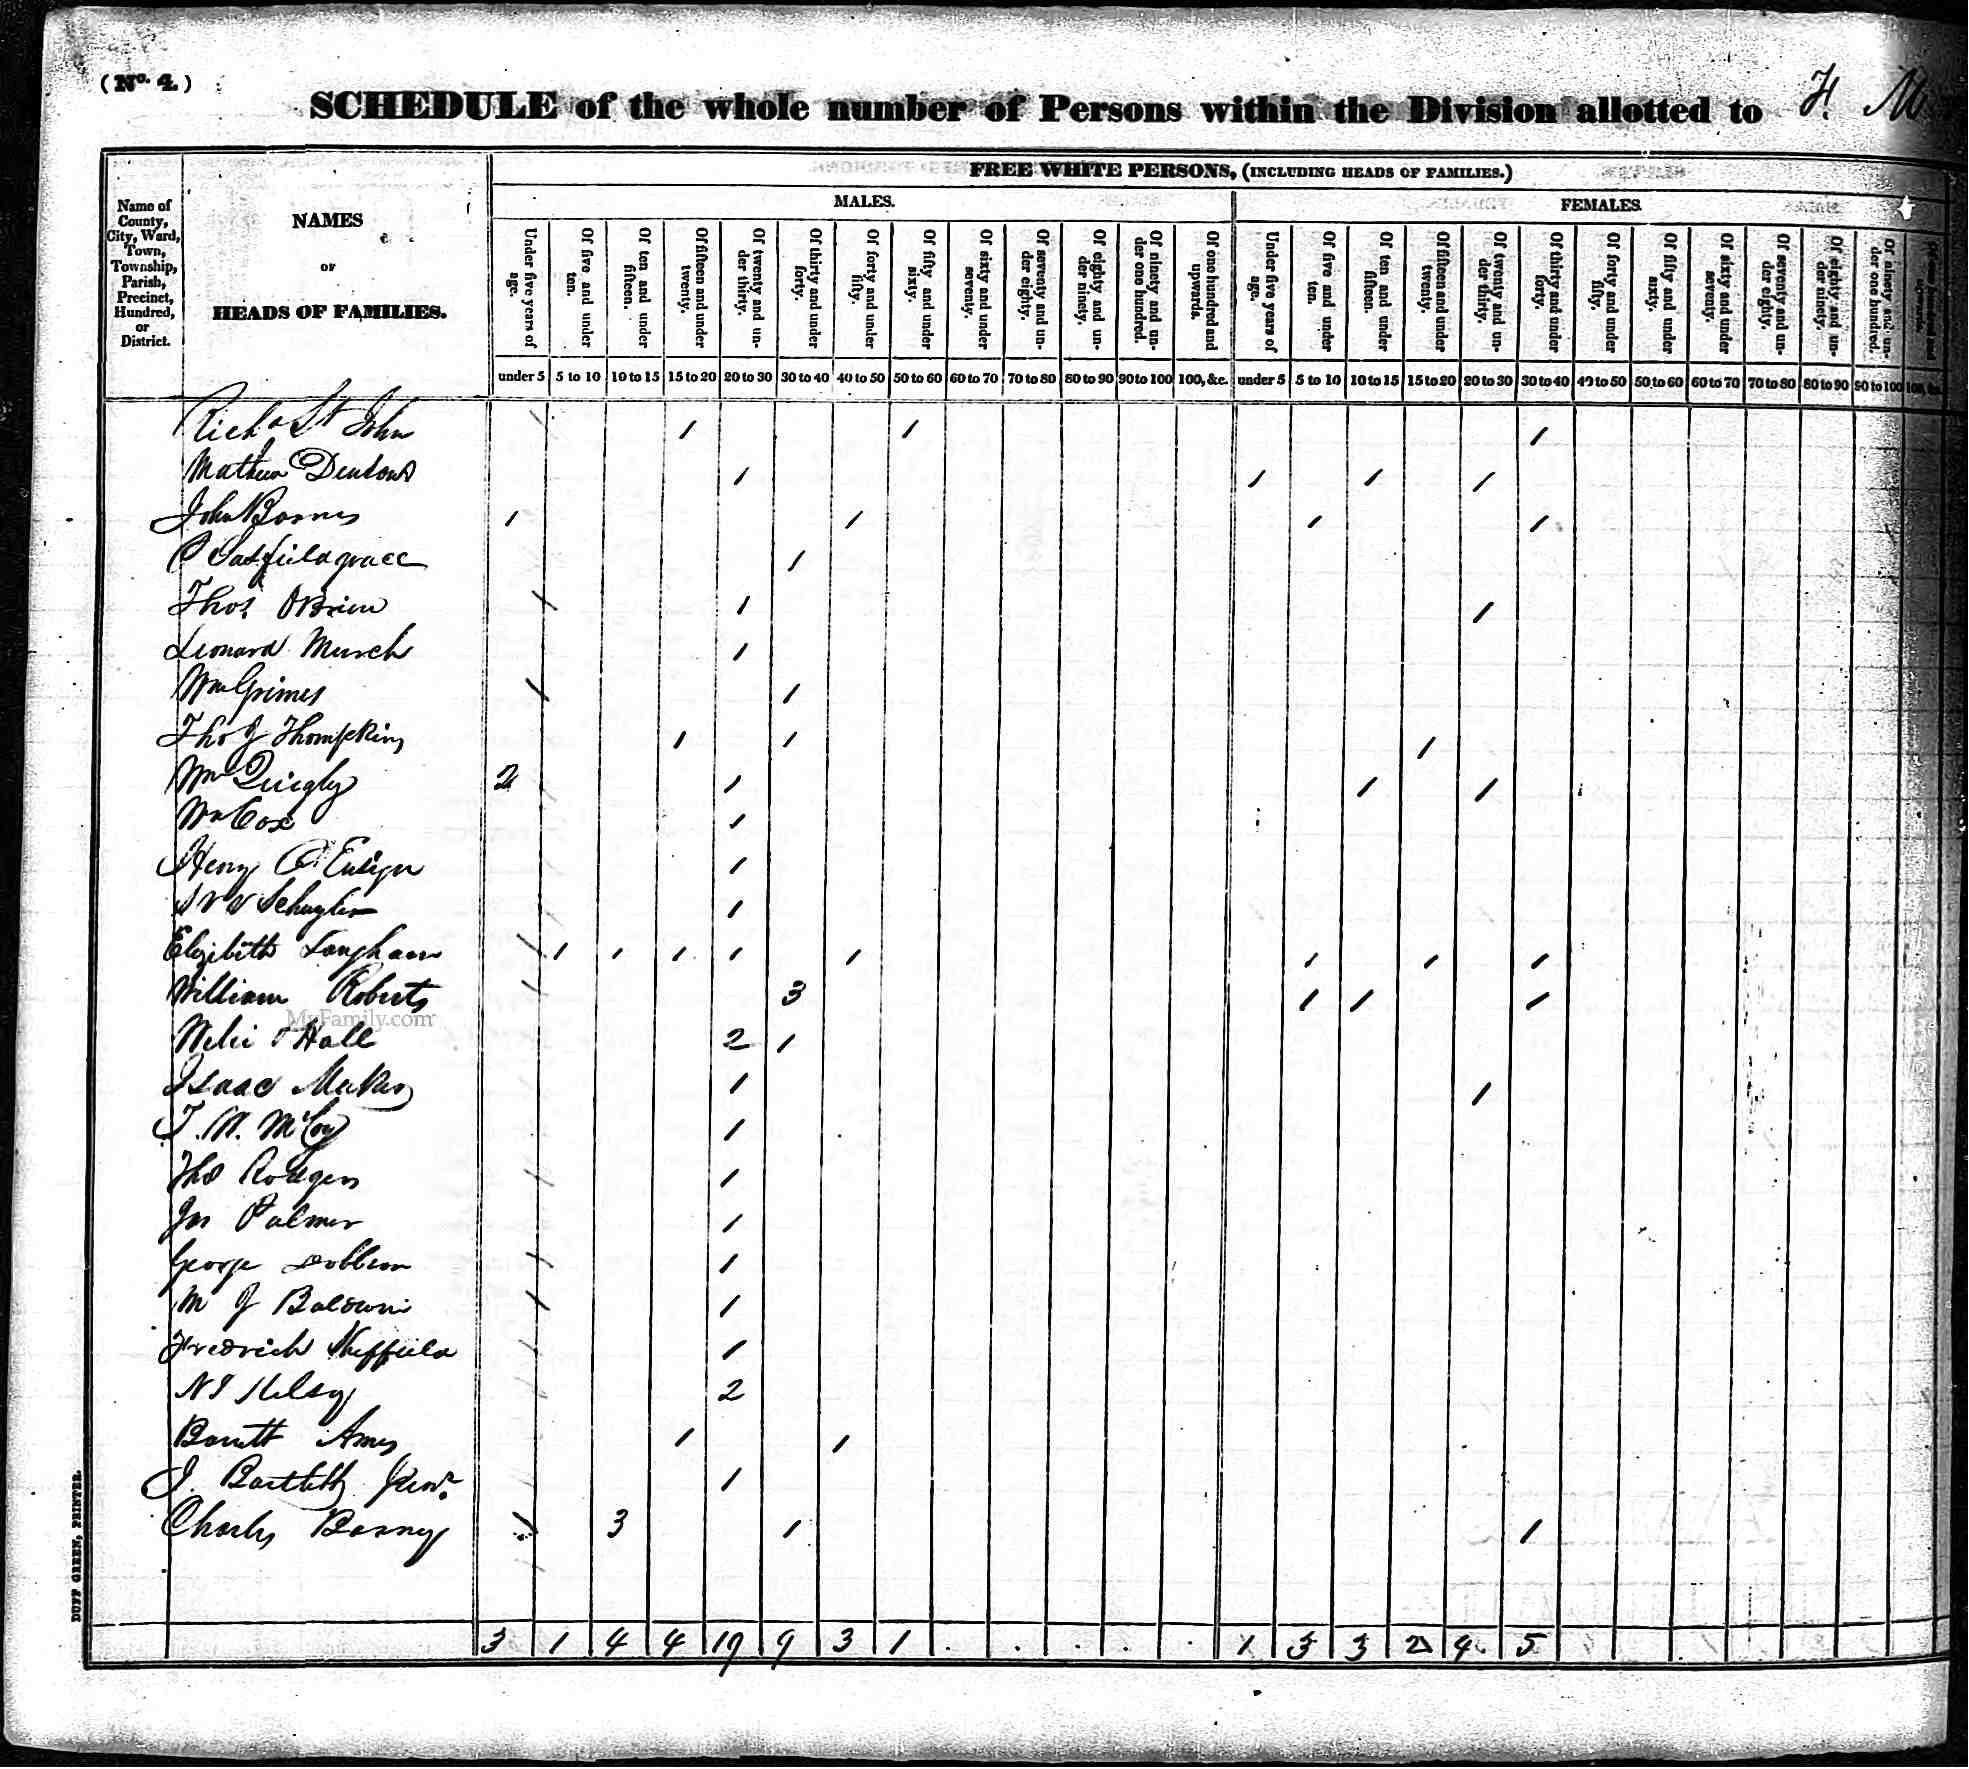 (No. 4.)
SCHEDULE of the whole number of Persons within the Division allotted to H. M
FREE WHITE PERSONS, (INCLUDING HEADS OF FAMILIES.)
MALES. FEMALES.
Name of County, City, Ward, Town, Township, Parish, Precinct, Hundred, or District.
NAMES
OF
HEADS OF FAMILIES.
Under five years of age. Of five and under ten. Of ten and under fifteen. Of fifteen and under twenty. Of twenty and under thirty. Of thirty and under forty. Of forty and under fifty. Of fifty and under sixty. Of sixty and under seventy. Of seventy and under eighty. Of eighty and under ninety. Of ninety and under one hundred. Of one hundred and upwards. Under five years of age. Of five and under ten. Of ten and under fifteen. Of fifteen and under twenty. Of twenty and under thirty. Of thirty and under forty. Of forty and under fifty. Of fifty and under sixty. Of sixty and under seventy. Of seventy and under eighty. Of eighty and under ninety. Of ninety and under one hundred.
under 5 5 to 10 10 to 15 15 to 20 20 to 30 30 to 40 40 to 50 50 to 60 60 to 70 70 to 80 80 to 90 90 to 100 100, &c. under 5 5 to 10 10 to 15 15 to 20 20 to 30 30 to 40 40 to 50 50 to 60 60 to 70 70 to 80 80 to 90 90 to 100 100, &c.
Richd St John 1 1 1
Mathew 1 1 1 1
John Barnes 1 1 1 1
1
Thos. OBrien 1 1
Leonard Murch 1
Wm Grimes 1
Tho J Thompkins 1 1 1
Wm Quigly 2 1 1 1
Wm Cox 1
Henry Ensign 1
Schuyler 1
Elizibeth Langham 1 1 1 1 1 1 1 1
William Roberts 3 1 1 1
MyFamily.com
Hall 2 1
Isaac 1 1
McCoy 1
Tho Rodgers 1
Jas Palmer 1
George 1
M J Baldwin 1
Fredrick Sheffield 1
Kelsey 2
Barrett Ames 1 1
J. Bartlett 1
Charles Barney 3 1 1
3 1 4 4 19 9 3 1 1 3 3 2 4 5
DUFF GREEN, PRINTER.